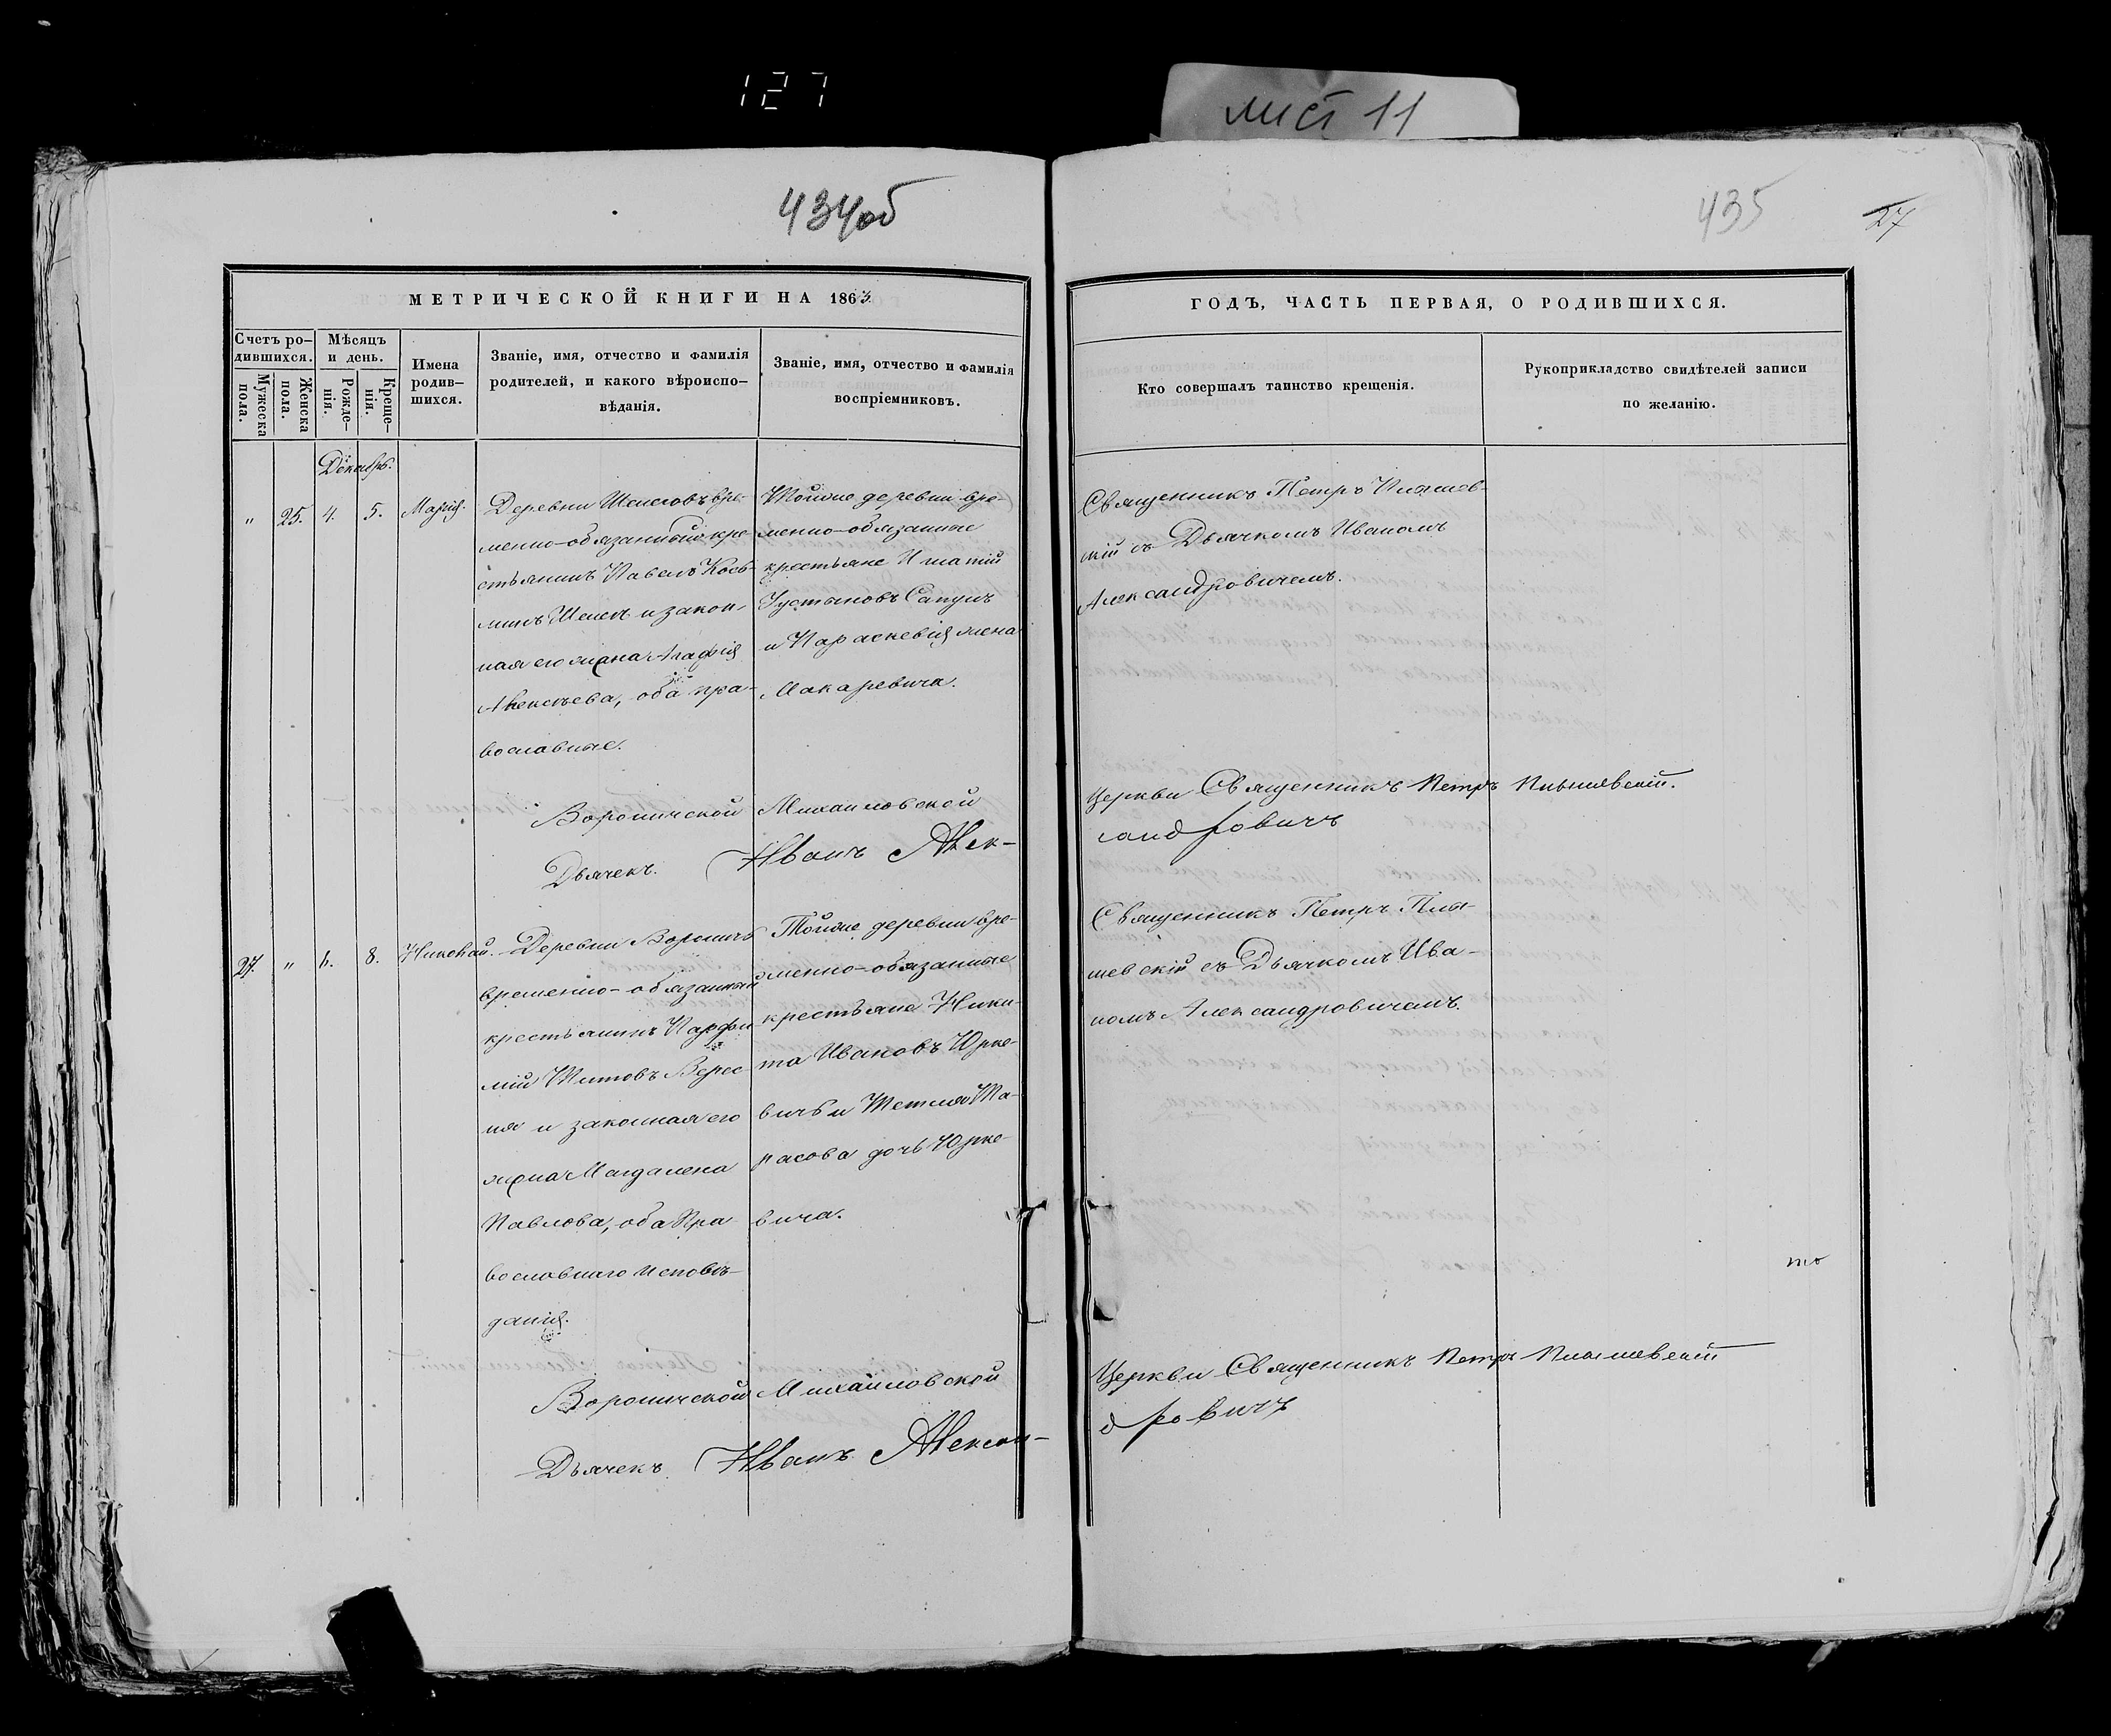 127
лист 11
434об
435
27
МЕТРИЧЕСКОЙ КНИГИ НА 1863
ГОДЪ, ЧАСТЬ ПЕРВАЯ, О РОДИВШИХСЯ.
Счетъ ро-
дившихся.
Мужеска
пола.
Женска
пола.
Мѣсяцъ
и день.
Рожде-
нія.
Креще-
нія.
Имена
родив-
шихся.
Званіе, имя, отчество и фамилія
родителей, и какого вѣроиспо-
вѣданія.
Званіе, имя, отчество и фамилія
воспріемниковъ.
Кто совершалъ таинство крещенія.
Рукоприкладство свидѣтелей записи
по желанію.
Декабрь.
" 25. 4. 5. Марія.
Деревни Шелеговъ вре-
менно-обязанный кре-
стьянинъ Павелъ Кось-
минъ и закон-
ная его жена Агафія
Алексѣева, оба пра-
вославные.
Тойже деревни вре-
менно-обязанные
крестьяне Игнатій
Іустиновъ Сапунъ
и Параскевія жена
Макаревича.
Священникъ Петръ
скій съ Дьячкомъ Иваномъ
Александровичемъ.
Вороничской Михайловской Церкви Священникъ Петръ
Дьячекъ. Иванъ Алек-сандровичъ
27. " 6. 8. Николай.
Деревни Вороничъ
временно-обязанный
крестьянинъ Парфе
ній Титовъ Верес
ня и законная его
жена Магдалена
Павлова, оба Пра
вославнаго исповѣ-
данія.
Тойже деревни вре-
менно-обязанные
крестьяне Ники-
та Ивановъ Юрке-
вичъ и Та-
расова дочь Юрке-
вича.
Священникъ Петръ Плы-
шевскій съ Дьячкомъ Ива-
номъ Александровичемъ.
Вороничской Михайловской Церкви Священникъ Петръ Плышевскій
Дьячекъ. Иванъ Алексан-дровичъ